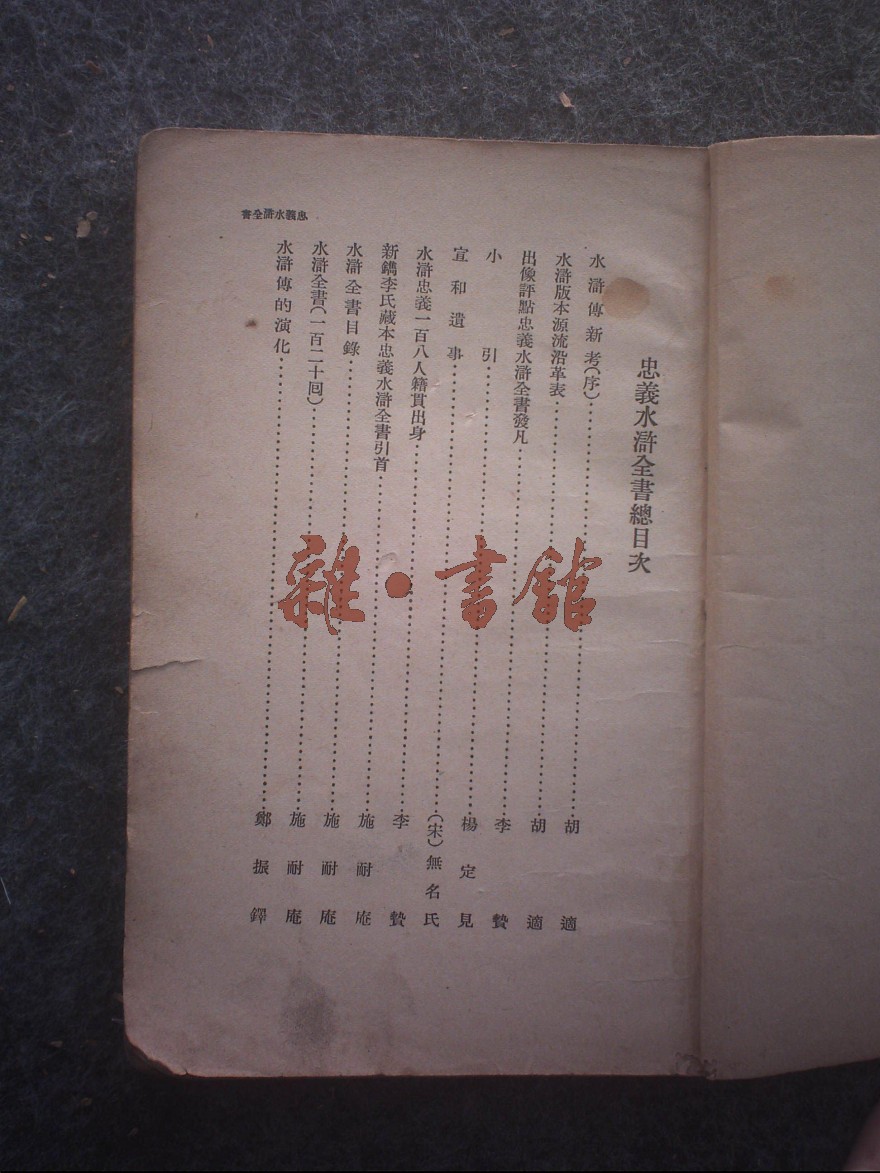 忠義水滸全書總目次
水滸傳新考(序)……胡適
水滸版本源流沿革表……胡適
出像評點忠義水滸全書發凡……李贄
小引……楊定見
宣和遺事……(宋)無名氏
水滸忠義一百八人籍貫出身……李贄
新鐫李氏藏本忠義水滸全書引首……施耐庵
水滸全書目錄……施耐庵
水滸全書(一百二十囘)……施耐庵
水滸傳的演化……鄭振鐸
忠義水滸全書
雜·書館